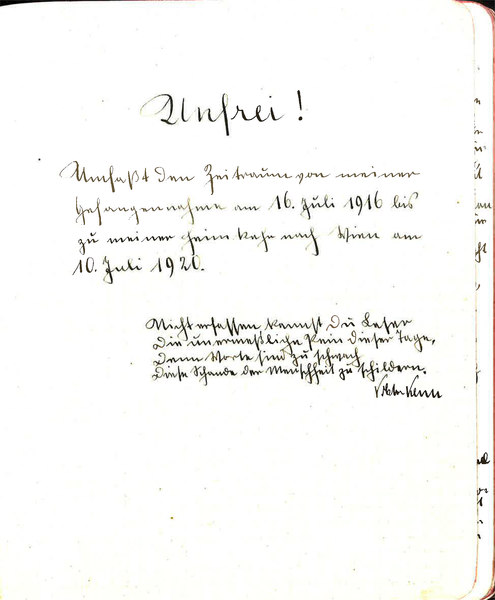 Unfrei!
Umfaßt den Zeitraum von meiner
Gefangennahme am 16. Juli 1916 bis
zu meiner Heimkehr nach Wien am
10. Juli 1920.
Nicht erfassen kannst Du Leser
Die unermeßliche Pein dieser Tage,
Denn Worte sind zu schwach
Diese Schande der Menschheit zu schildern.